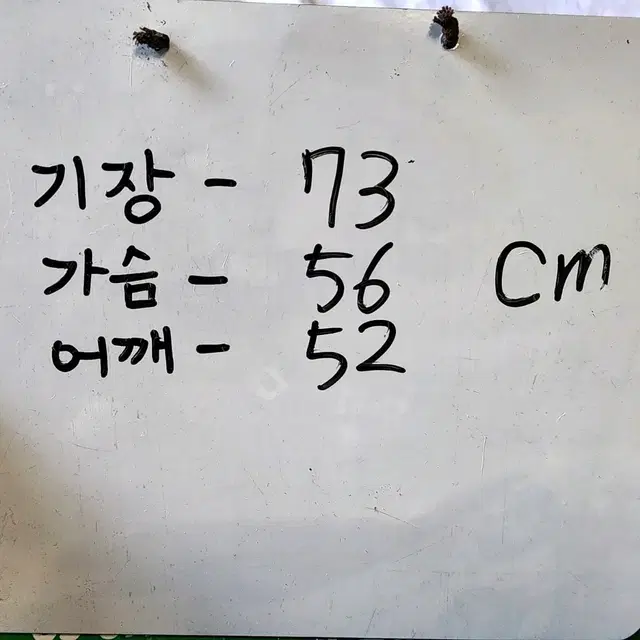 기장 - 73
가슴 - 56 cm
어깨 - 52